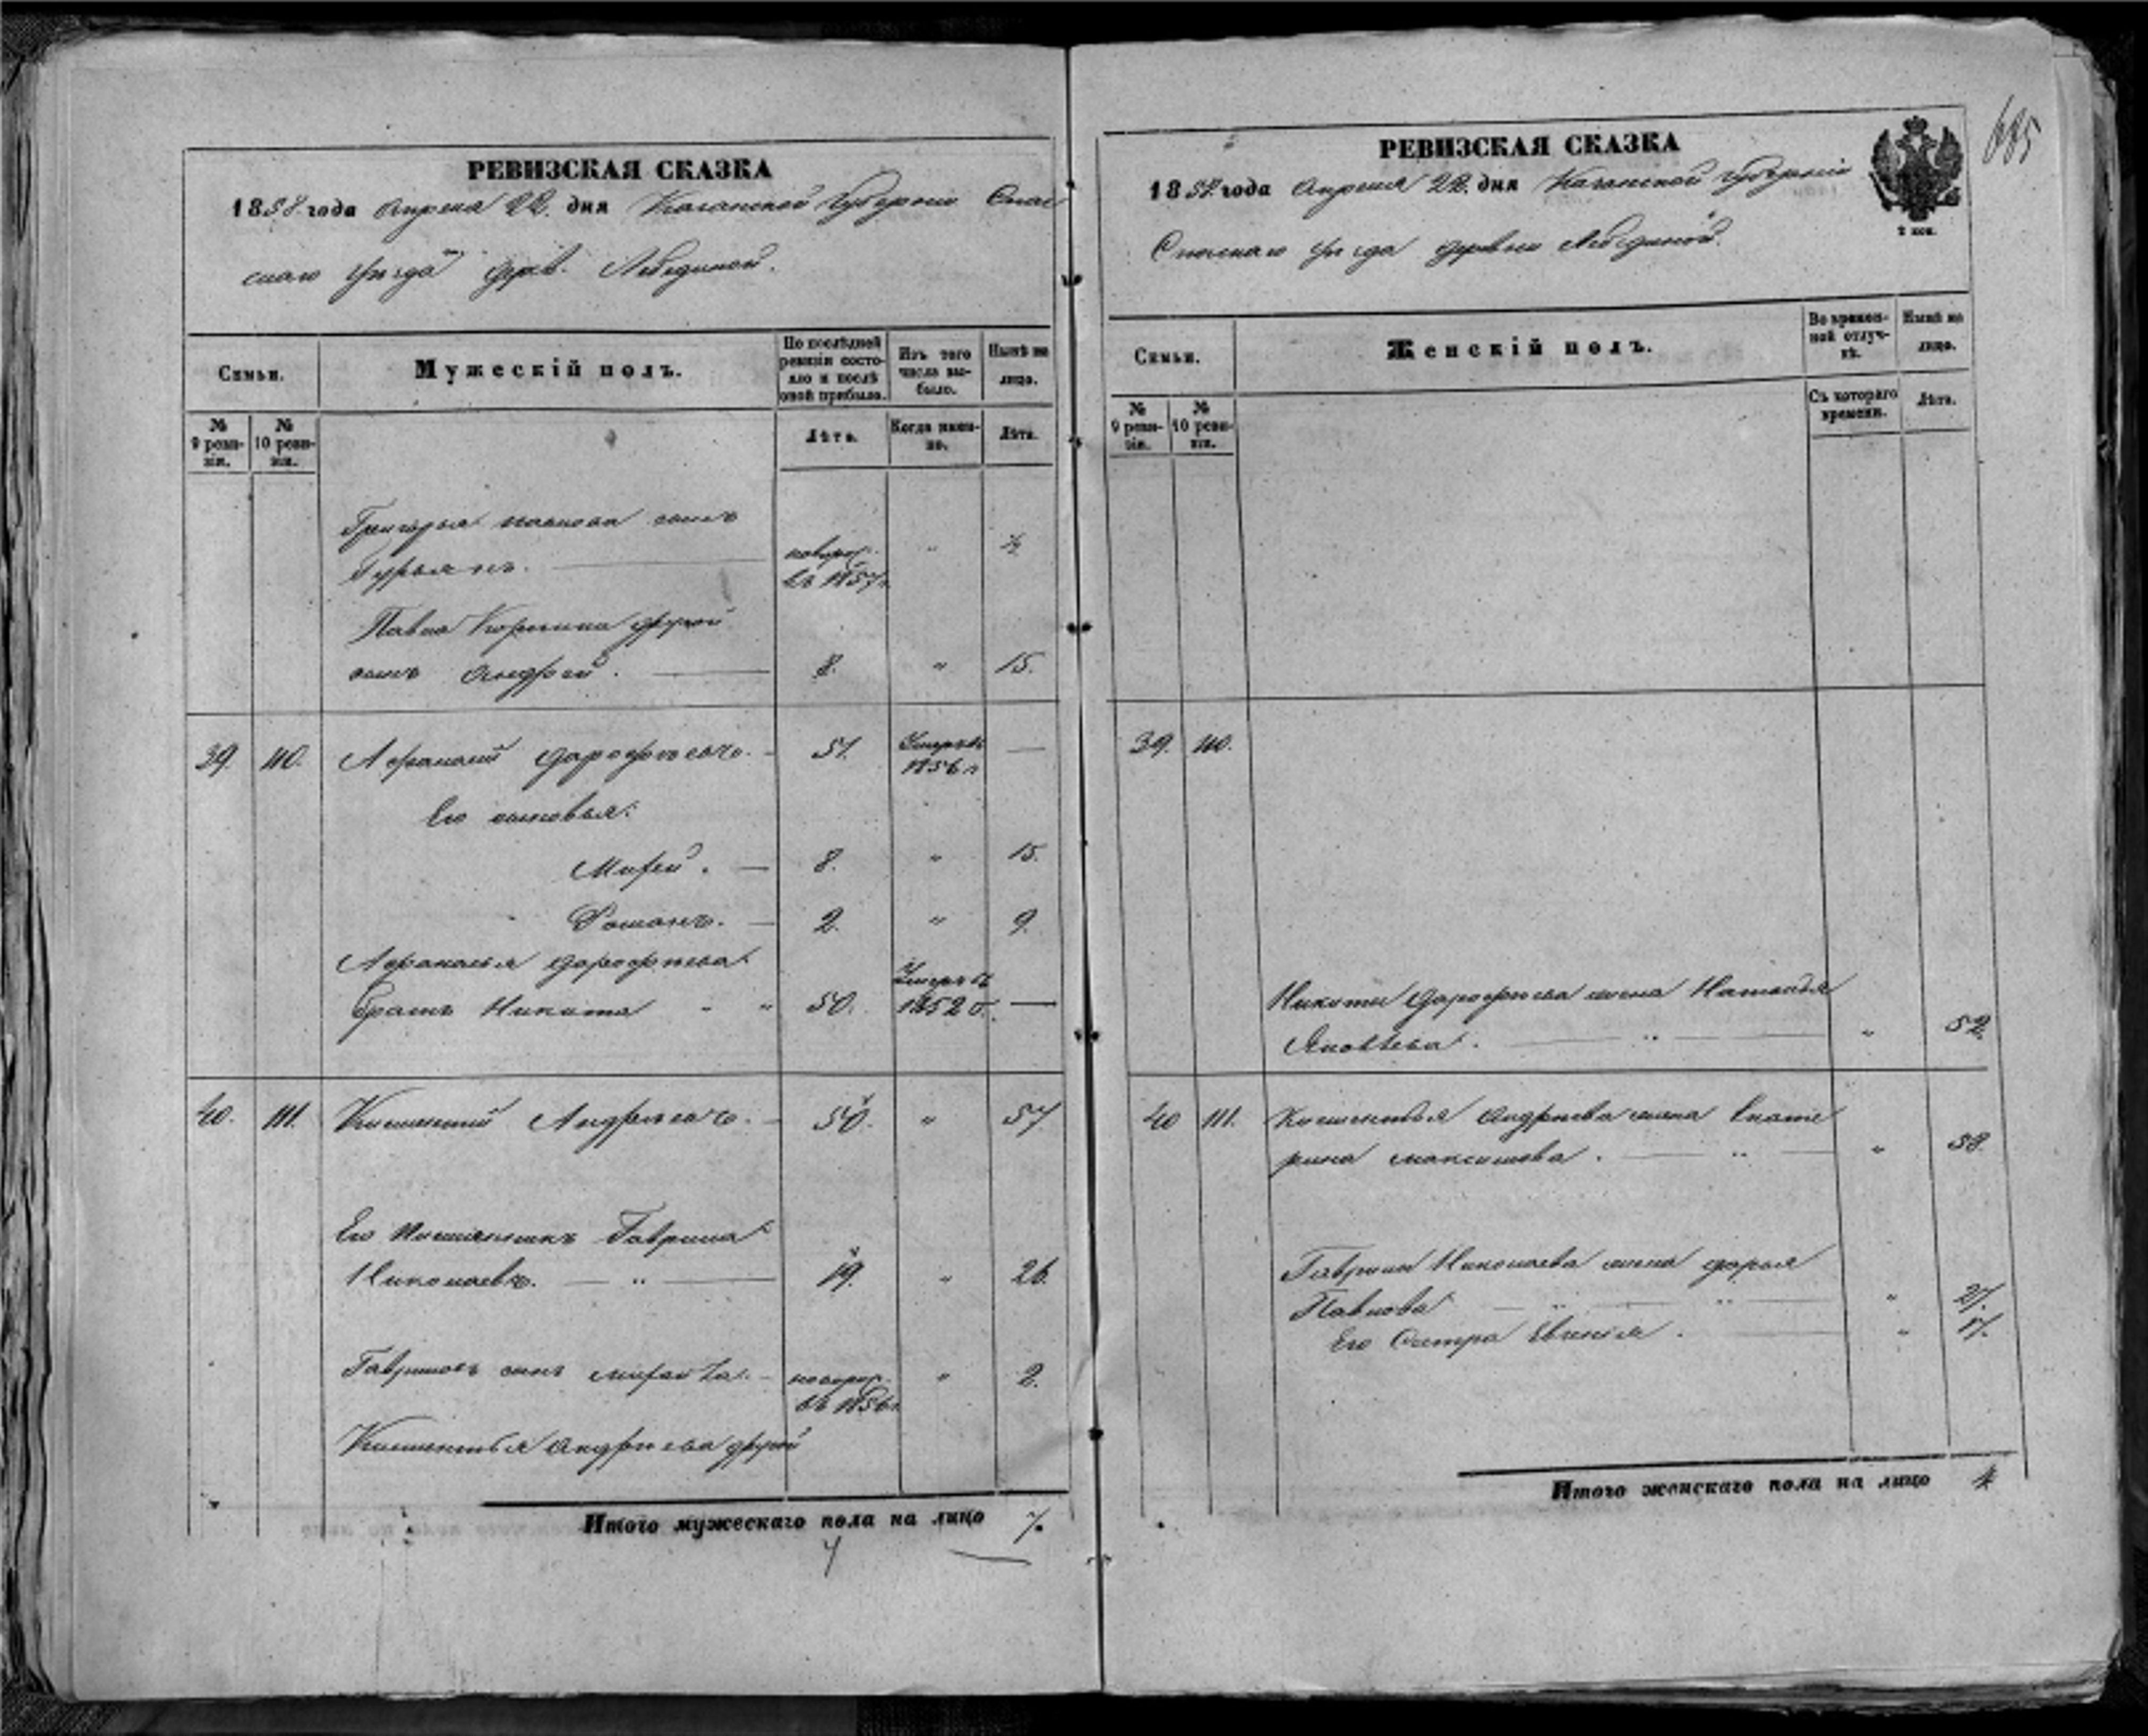 РЕВИЗСКАЯ СКАЗКА
1858 года Апреля 22 дня Казанской Губернiи Спас
скаго Уѣзда дерев. Лебединой.
Семьи.
Мужескiй полъ.
По послѣдней ревизiи состояло и послѣ оной прибыло.
Изъ того числа выбыло.
Нынѣ на лицо.
№ 9 ревизiи.
№ 10 ревизiи.
Лѣта.
Когда именно.
Лѣта.
Григорья Павлова сынъ
Гурьянъ.
новорож.
въ 1857 г. " ½
Павла другой
сынъ Андрей. 8. " 15.
39. 110. Афанасiй Дорофѣевъ. 51. Умеръ въ
1856 г. —
Его сыновья:
8. " 15.
Романъ. 2. " 9.
Афанасья Дорофѣева
братъ Никита 50. Умеръ въ
1852 г. —
40. 111. Климентiй Андрѣевъ. 50. " 57
Его племянникъ Гаврила
Николаевъ. 19. " 26.
Гавриловъ сынъ
новорож.
въ 1856 г. " 2.
Климентья Андрѣева другой
Итого мужескаго пола на лицо 7.
РЕВИЗСКАЯ СКАЗКА
1858 года Апреля 22 дня Казанской Губернiи
Спаскаго Уѣзда деревни Лебединой.
2 коп.
685
Семьи.
Женскiй полъ.
Во временной отлучкѣ.
Нынѣ на лицо.
№ 9 ревизiи.
№ 10 ревизiи.
Съ котораго времени.
Лѣта.
39. 110.
Никиты Дорофѣева жена Наталья
Яковлева. " 52.
40 111. Климентья Андрѣева жена Екате
рина Максимова. " 58.
Гаврилы Николаева жена Дарья
Павлова " 27.
Его Сестра Евгенiя. " 17.
Итого женскаго пола на лицо 4